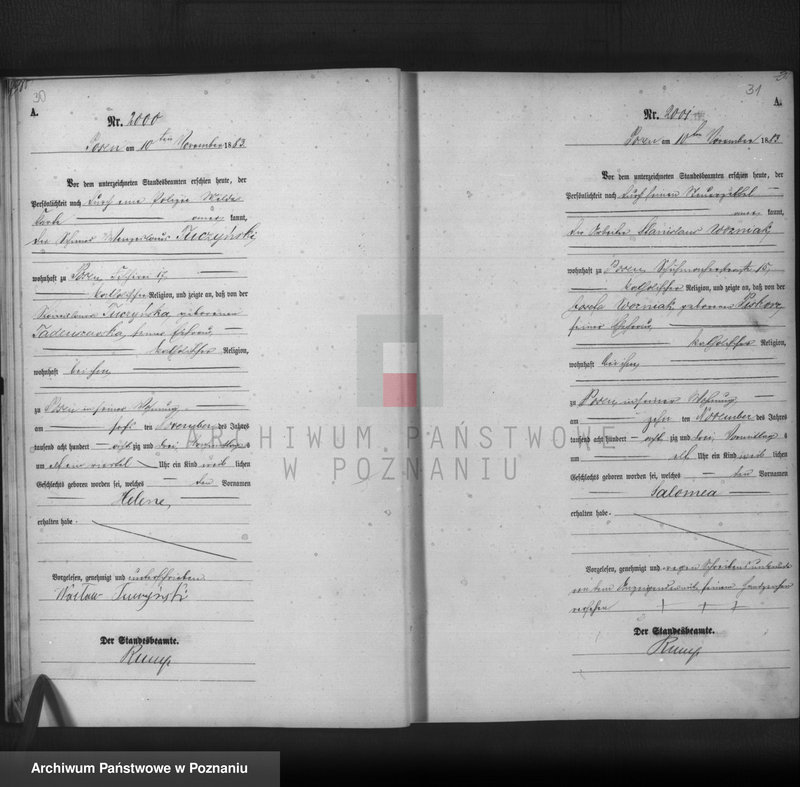 30
A.
Nr. 2000
Posen am 10ten November 1883.
Vor dem unterzeichneten Standesbeamten erschien heute, der
Persönlichkeit nach durch eine Polizei Melde
Karte kannt,
der
Tuczyński
wohnhaft zu Posen 17
katholischer Religion, und zeigte an, daß von der
Tuczyńska geborenen
seiner Ehefrau,
katholischer Religion,
wohnhaft bei ihm
zu Posen in seiner Wohnung
am November des Jahres
tausend acht hundert acht zig und drei, Vormittags
um Uhr ein Kind weib lichen
Geschlechts geboren worden sei, welches den Vornamen
Helene,
erhalten habe.
Vorgelesen, genehmigt und unterschrieben
Wacław Tuczyński
Der Standesbeamte.
Rump
31
A.
Nr. 2001
Posen am 10ten November 1883
Vor dem unterzeichneten Standesbeamten erschien heute, der
Persönlichkeit nach durch seinen Steuerzettel
kannt,
der Arbeiter Stanislaus Wozniak
wohnhaft zu Posen Schuhmacherstraße 15
katholischer Religion, und zeigte an, daß von der
Wozniak geborenen
seiner Ehefrau,
katholischer Religion,
wohnhaft bei ihm
zu Posen in seiner Wohnung
am zehn ten November des Jahres
tausend acht hundert acht zig und drei, Vormittag
um elf Uhr ein Kind weib lichen
Geschlechts geboren worden sei, welches den Vornamen
Salomea
erhalten habe.
Vorgelesen, genehmigt und wegen Schreibensunkunde
von dem Anzeigenden mit seinem Handzeichen
versehen + + +
Der Standesbeamte.
Rump
ARCHIWUM PAŃSTWOWE
W POZNANIU
Archiwum Państwowe w Poznaniu